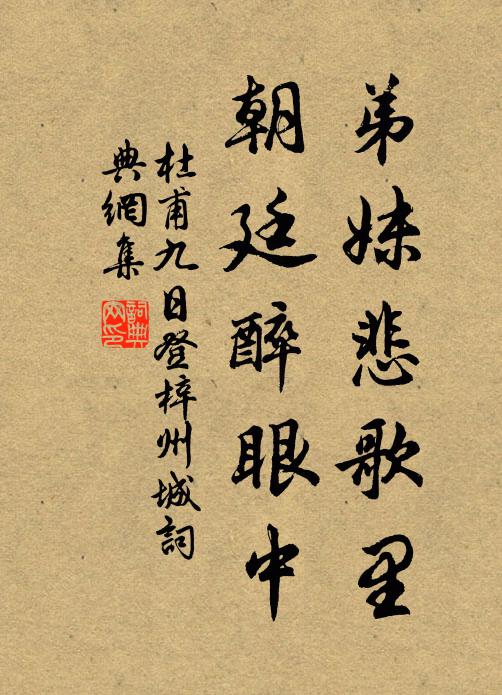 弟妹悲歌里
朝廷醉眼中
杜甫九日登梓州城詞
典網集
詞典
网印